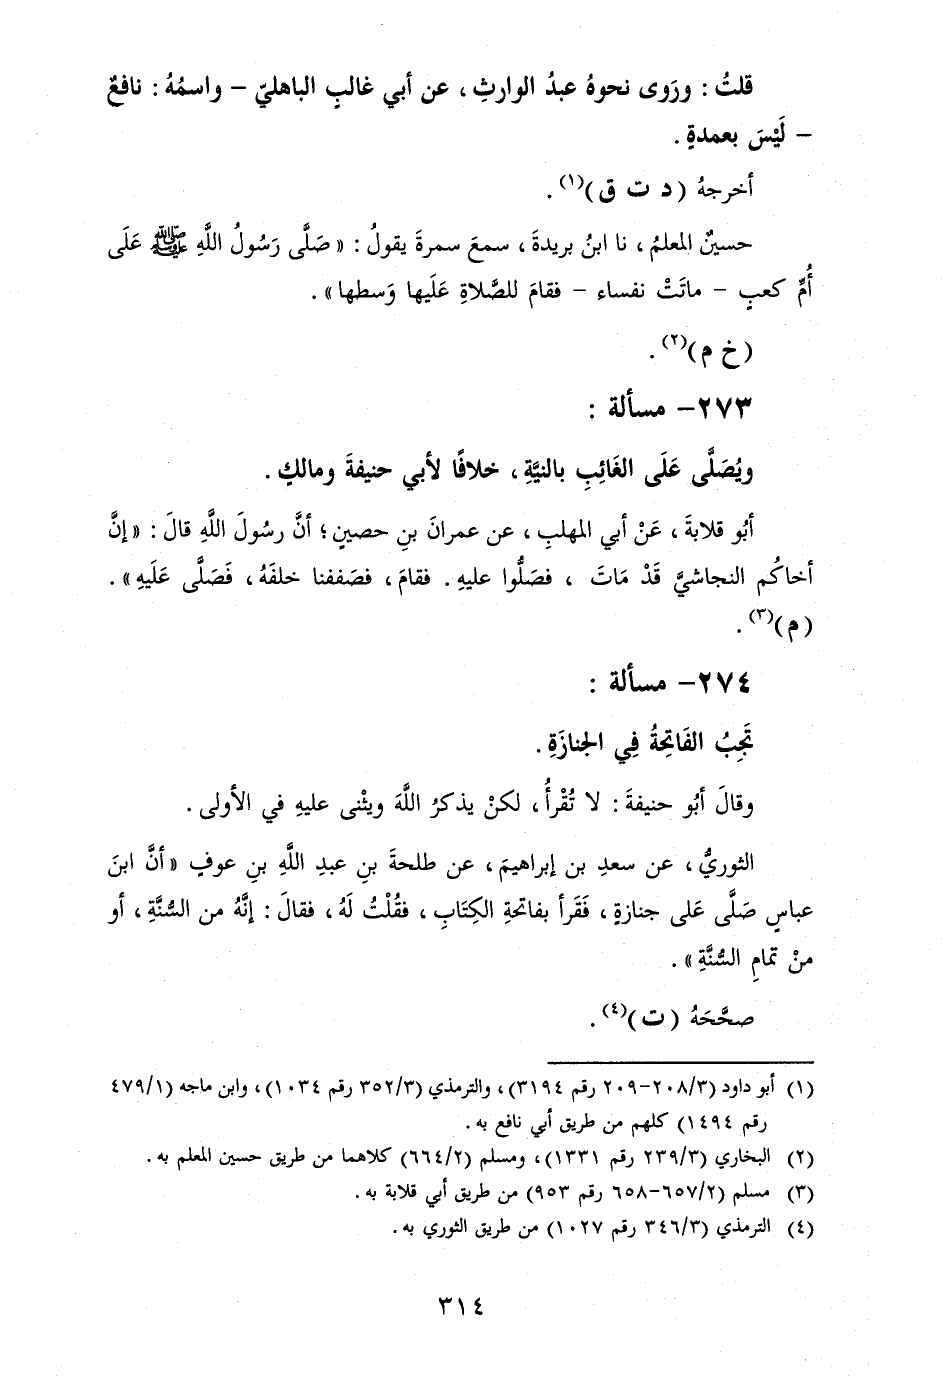 قلتُ : ورَوى نحوهُ عبدُ الوارثِ ، عن أبي غالبٍ الباهليّ – واسمُهُ : نافعٌ
– لَيْسَ بعمدةٍ .
أخرجهُ (د ت ق)(١) .
حسينٌ المعلمُ ، نا ابنُ بريدةَ ، سمعَ سمرةَ يقولُ : «صَلَّى رَسُولُ اللَّهِ ﷺ عَلَى
أُمِّ كعبٍ – ماتَتْ نفساء – فقامَ للصَّلاةِ عَلَيها وَسطها» .
(خ م)(٢) .
٢٧٣– مسألة :
ويُصَلَّى عَلَى الغَائِبِ بالنيَّةِ ، خلافًا لأبي حنيفةَ ومالكٍ .
أبُو قلابةَ ، عَنْ أبي المهلبِ ، عن عمرانَ بنِ حصينٍ ؛ أنَّ رسُولَ اللَّهِ قالَ : «إنَّ
أخاكُم النجاشيَّ قَدْ مَاتَ ، فصَلُّوا عليهِ. فقامَ ، فصَففنا خلفَهُ ، فَصَلَّى عَلَيهِ» .
(م)(٣) .
٢٧٤– مسألة :
تَجِبُ الفَاتِحةُ فِي الجنازَةِ .
وقالَ أبُو حنيفةَ : لا تُقْرأُ ، لكنْ يذكرُ اللَّهَ ويثْنى عليهِ في الأولى .
الثوريُّ ، عن سعدِ بن إبراهيمَ ، عن طلحةَ بنِ عبدِ اللَّهِ بنِ عوفٍ «أنَّ ابنَ
عباسٍ صَلَّى عَلى جنازةٍ ، فَقَرأ بفاتحةِ الكِتَابِ ، فقُلْتُ لَهُ ، فقالَ : إنَّهُ من السُّنَّةِ ، أو
منْ تمامِ السُّنَّةِ» .
صحَّحَهُ (ت)(٤) .
(١) أبو داود (٢٠٨/٣–٢٠٩ رقم ٣١٩٤) ، والترمذي (٣٥٢/٣ رقم ١٠٣٤) ، وابن ماجه (٤٧٩/١
رقم ١٤٩٤) كلهم من طريق أبي نافع به .
(٢) البخاري (٢٣٩/٣ رقم ١٣٣١) ، ومسلم (٦٦٤/٢) كلاهما من طريق حسين المعلم به .
(٣) مسلم (٦٥٧/٢–٦٥٨ رقم ٩٥٣) من طريق أبي قلابة به .
(٤) الترمذي (٣٤٦/٣ رقم ١٠٢٧) من طريق الثوري به .
٣١٤